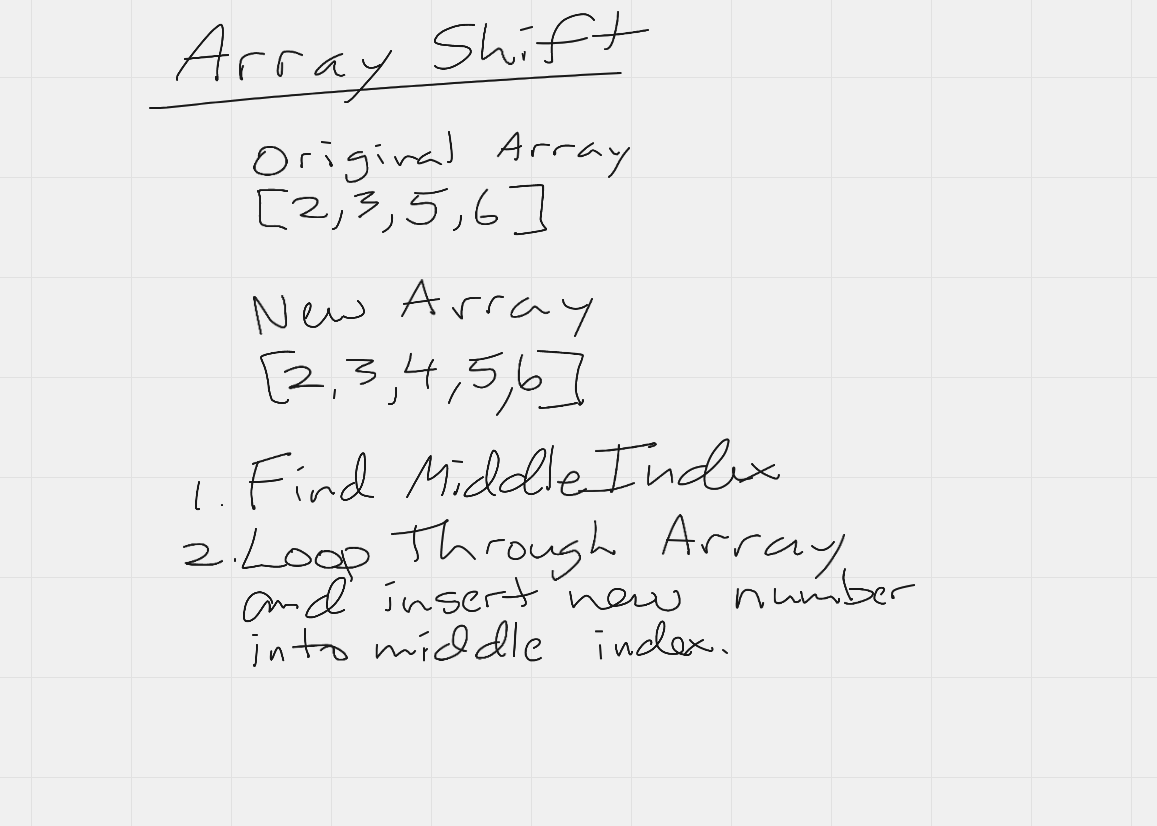 Array Shift
Original Array
[2,3,5,6]
New Array
[2,3,4,5,6]
1. Find MiddleIndex
2. Loop Through Array
and insert new number
into middle index.